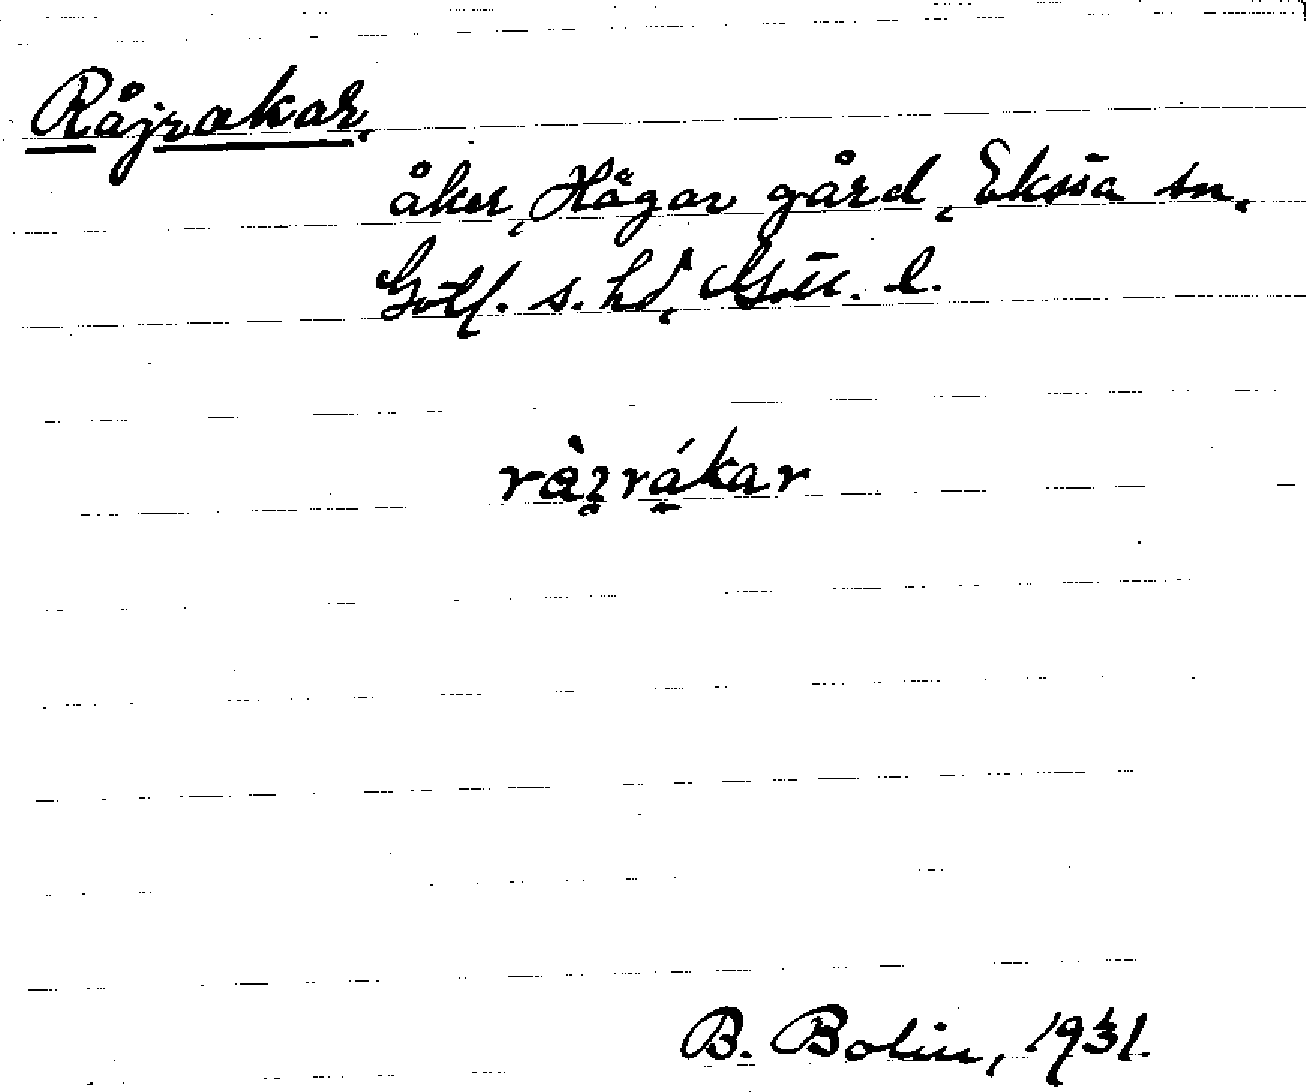 Råjrakar,
åker, Hägar gård, Eksta sn,
Gotl. s. hd, Gotl. l.
ràʒrákar
B. Bolin, 1931.